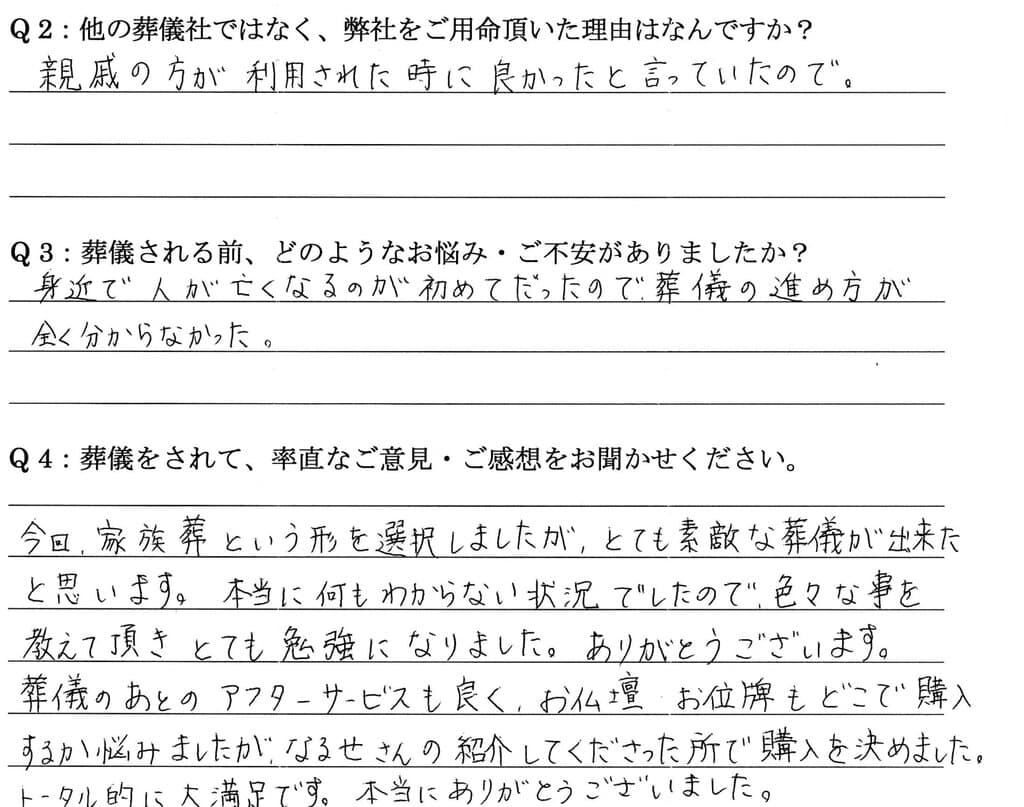 Q2：他の葬儀社ではなく、弊社をご用命頂いた理由はなんですか？
親戚の方が利用された時に良かったと言っていたので。
Q3：葬儀される前、どのようなお悩み・ご不安がありましたか？
身近で人が亡くなるのが初めてだったので、葬儀の進め方が
全く分からなかった。
Q4：葬儀をされて、率直なご意見・ご感想をお聞かせください。
今回、家族葬という形を選択しましたが、とても素敵な葬儀が出来た
と思います。本当に何もわからない状況でしたので、色々な事を
教えて頂きとても勉強になりました。ありがとうございます。
葬儀のあとのアフターサービスも良く、お仏壇 お位牌もどこで購入
するか悩みましたが、なるせさんの紹介してくださった所で購入を決めました。
トータル的に大満足です。本当にありがとうございました。